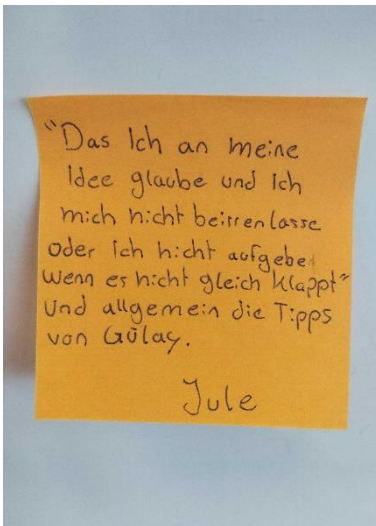 "Das Ich an meine
Idee glaube und Ich
mich nicht beirrenlasse
oder Ich nicht aufgebe
wenn es nicht gleich klappt"
Und allgemein die Tipps
von Gülay.
Jule